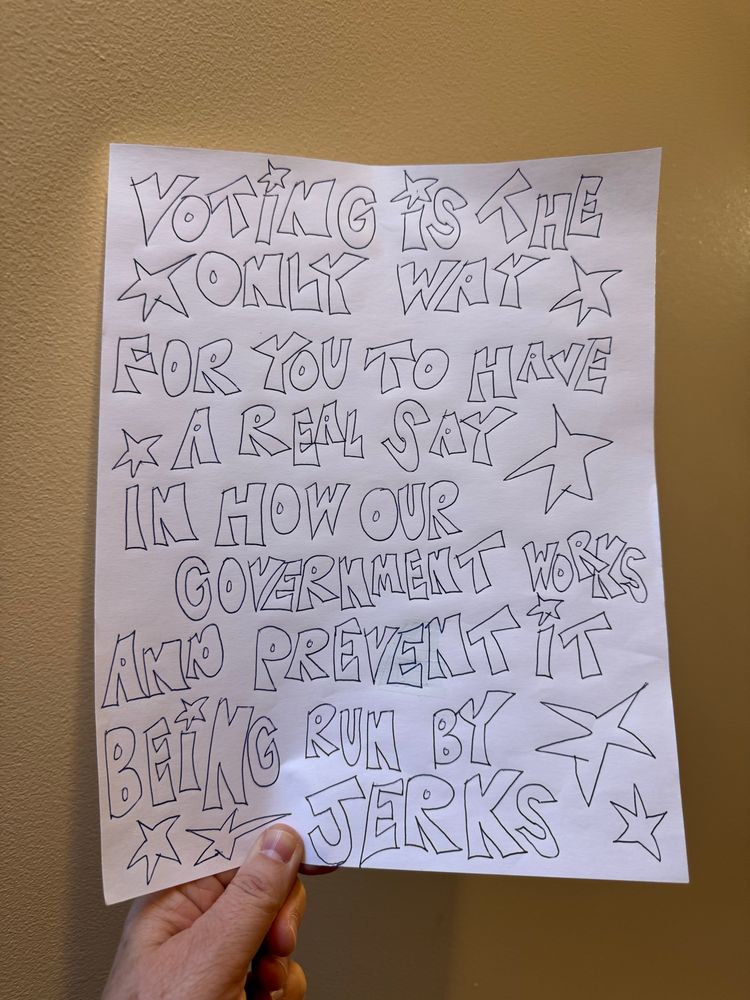 VOTiNG iS THE
ONLY WAY
FOR YOU TO HAVE
A REAL SAY
IN HOW OUR
GOVERNMENT WORKS
AND PREVENT iT
BEiNG RUN BY
JERKS